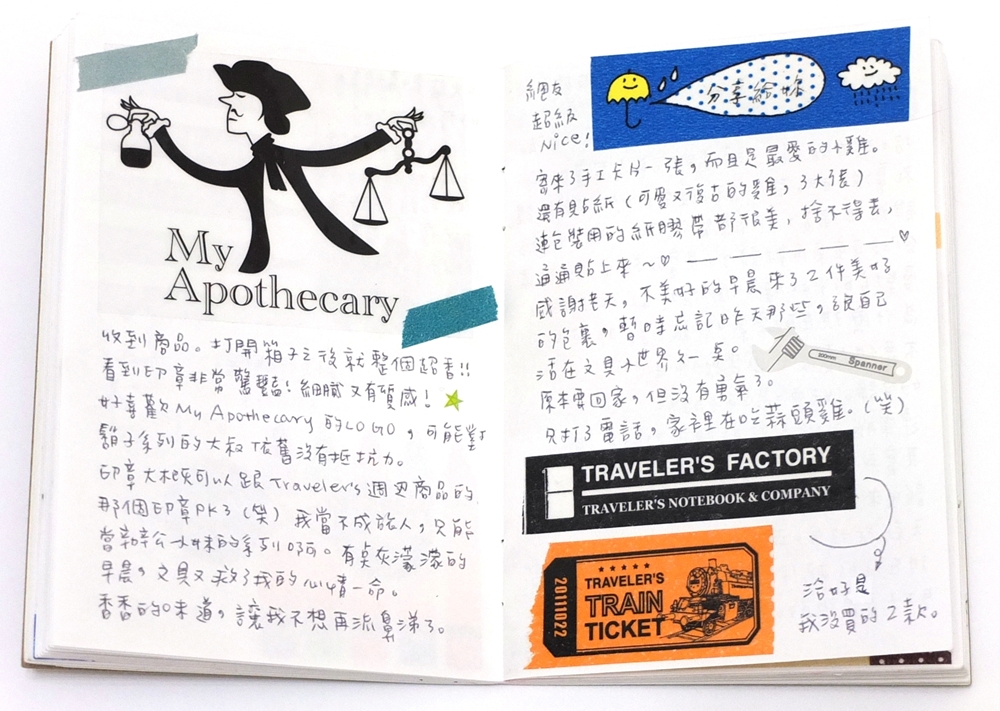 My
Apothecary
收到商品。打開箱子之後就整個超香!!
看到印章非常驚豔!細膩又有質感!
好喜歡My Apothecary的LOGO,可能對
鬍子系列的大叔依舊沒有抵抗力。
印章大概可以跟Traveler's週邊商品的
那個印章PK了(笑)我當不成旅人,只能
當辦公小妹的系列啊。有點灰濛濛的
早晨,文具又救了我的心情一命。
香香的味道,讓我不想再流鼻涕了。
網友
超級
Nice!
分享給妳
寄來了手工卡片一張,而且是最愛的小雞。
還有貼紙(可愛又復古的雞,3大張)
連包裝用的紙膠帶都很美,捨不得丟,
通通貼上來~♡
感謝老天,不美好的早晨來了2件美好
的包裹,暫時忘記昨天那些,放自己
活在文具小世界久一點。
200mm Spanner
原本要回家,但沒有勇氣了。
只打了電話,家裡在吃蒜頭雞。(笑)
TRAVELER'S FACTORY
TRAVELER'S NOTEBOOK & COMPANY
20111022
TRAVELER'S
TRAIN
TICKET
恰好是
我沒買的2款。